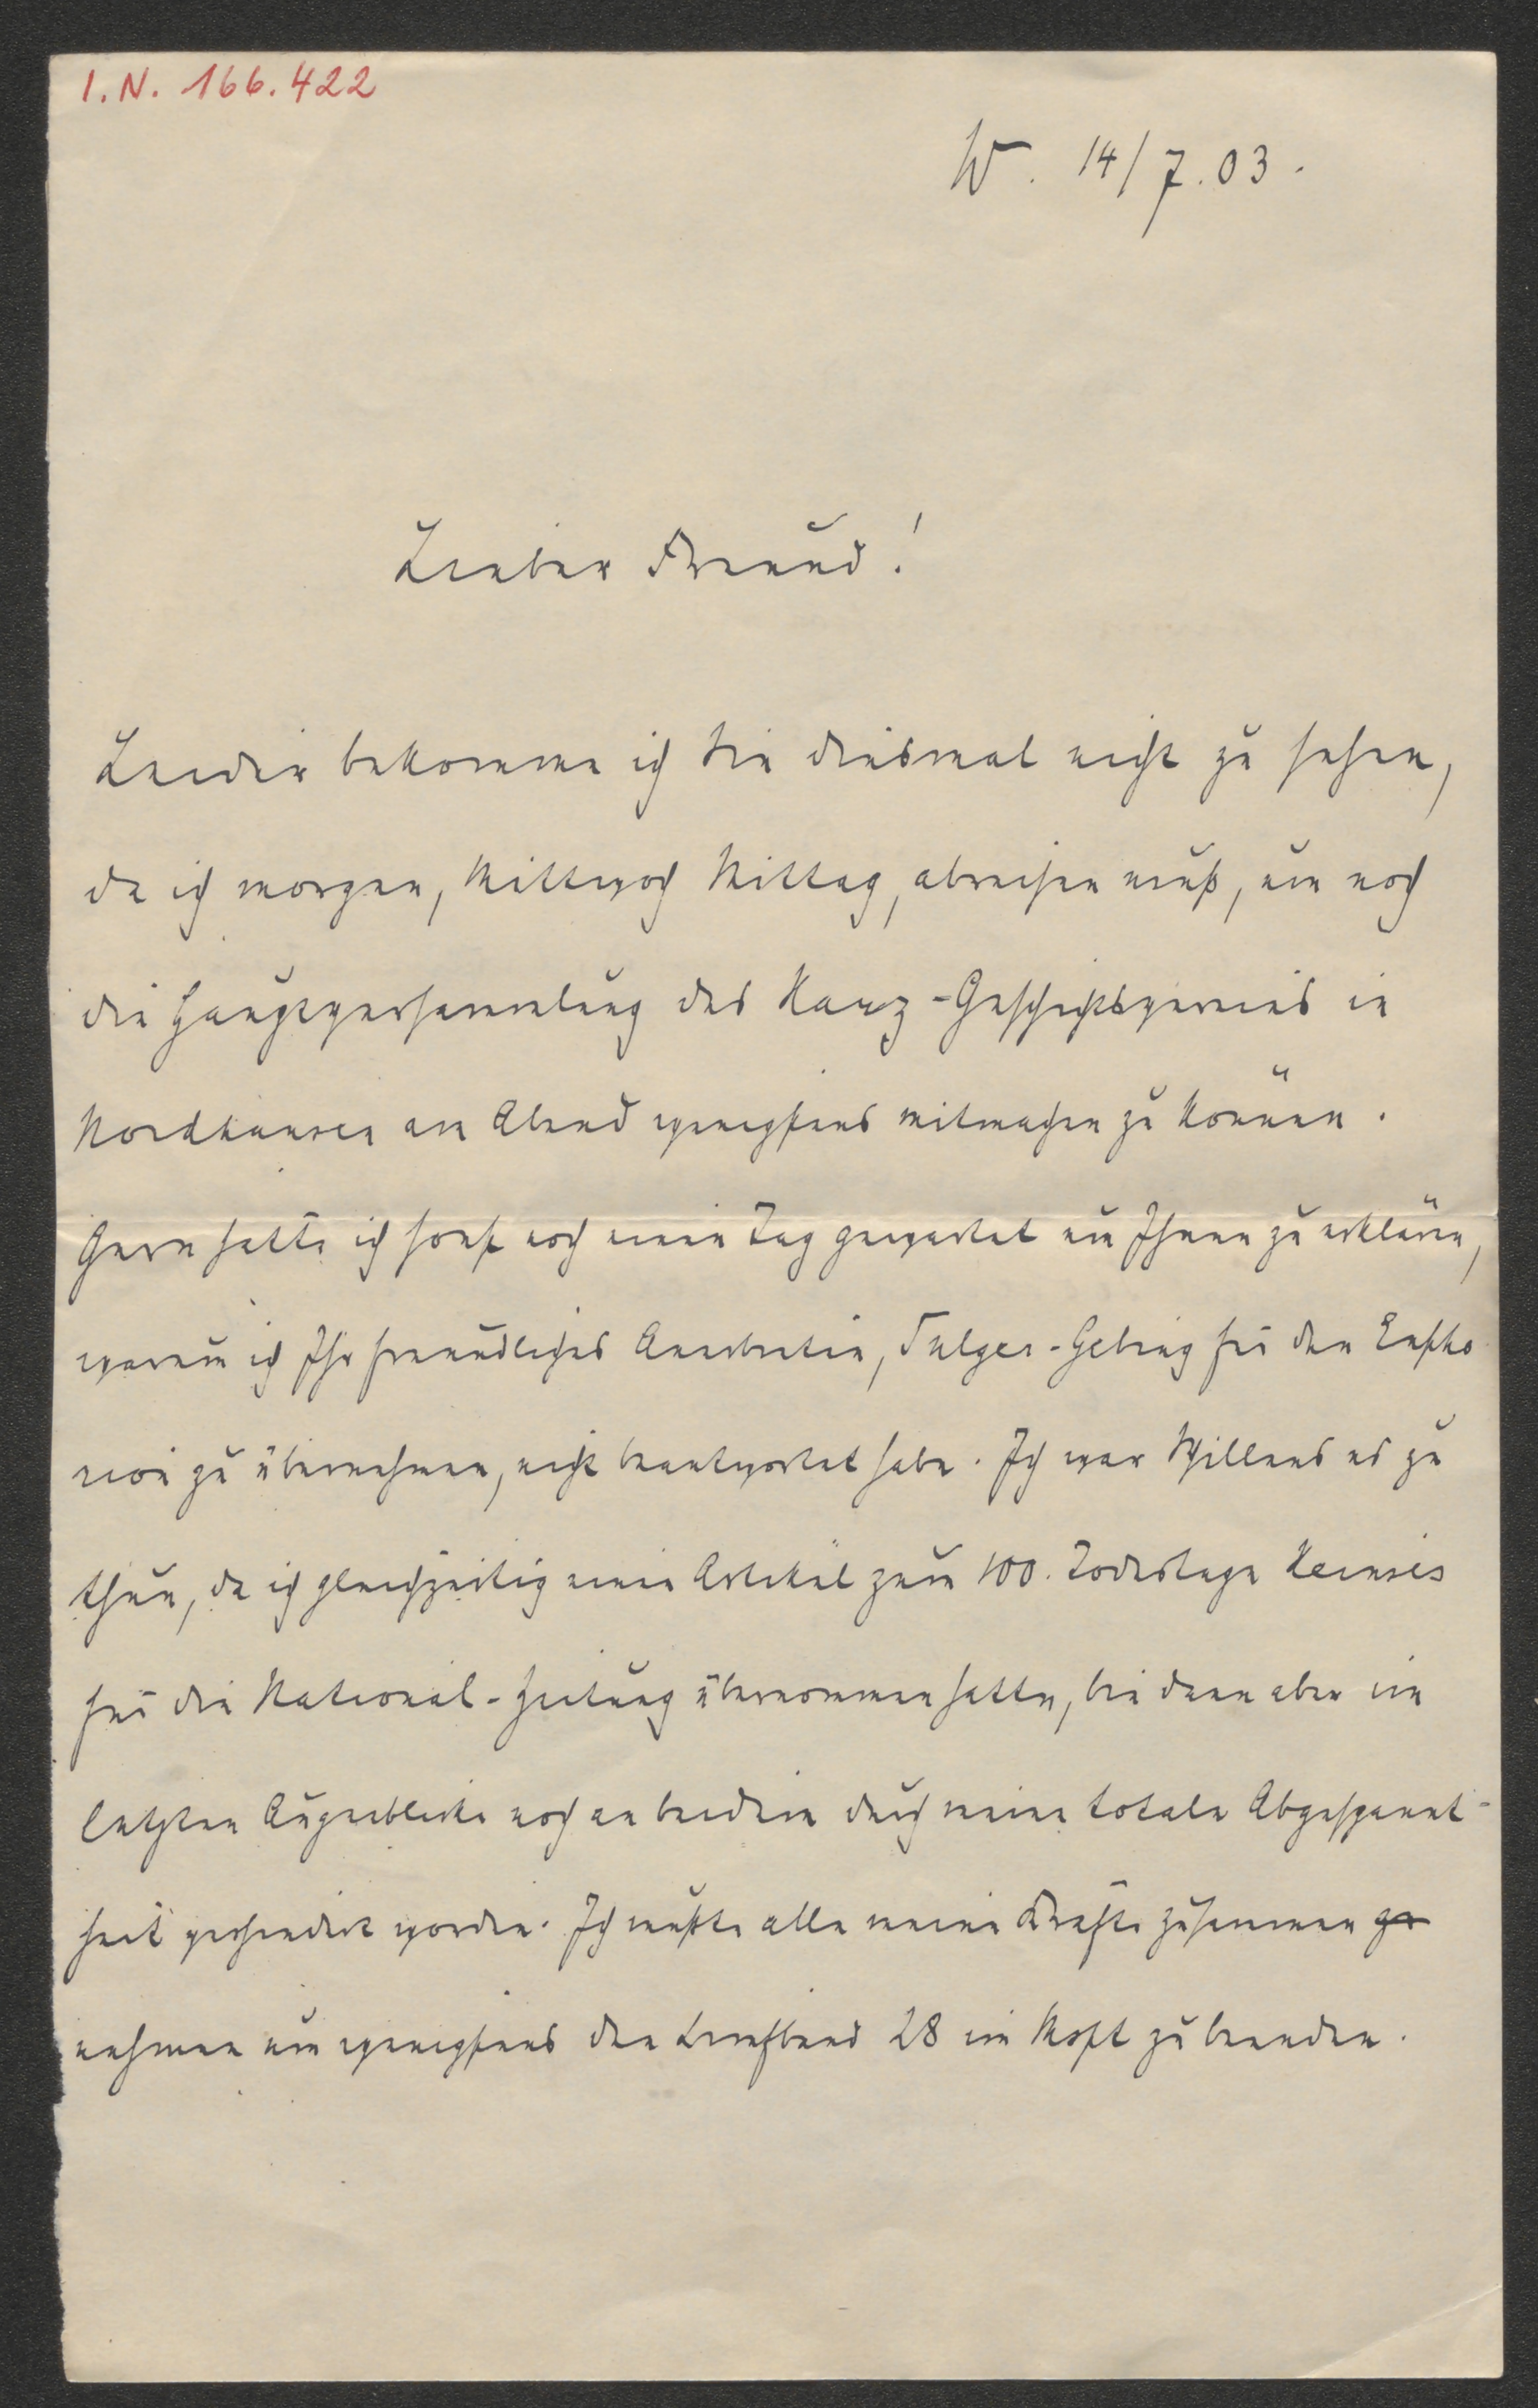 I. N. 166.422
W. 14/7.03.
Lieber Freund!
Leider bekomme ich Sie diesmal nicht zu sehen,
da ich morgen, Mittwoch Mittag, abreisen muß, um noch
die Hauptversammlung des Harz-Geschichtsvereins in
Nordhausen am Abend wenigstens mitmachen zu können.
Gern hätte ich sonst noch einen Tag gewartet um Ihnen zu erklären,
warum ich Ihr freundliches Anerbieten, Sulger-Gebing für den Eupho
rion zu übernehmen, nicht beantwortet habe. Ich war Willens es zu
thun, da ich gleichzeitig einen Artikel zum 100. Todestage Heinses
für die National-Zeitung übernommen hatte, bin dann aber im
letzten Augenblicke noch an beidem durch meine totale Abgespannt-
heit verhindert worden. Ich mußte alle meine Kräfte zusammen ge
nehmen um wenigstens den Briefband 28 im Mspt zu beenden.